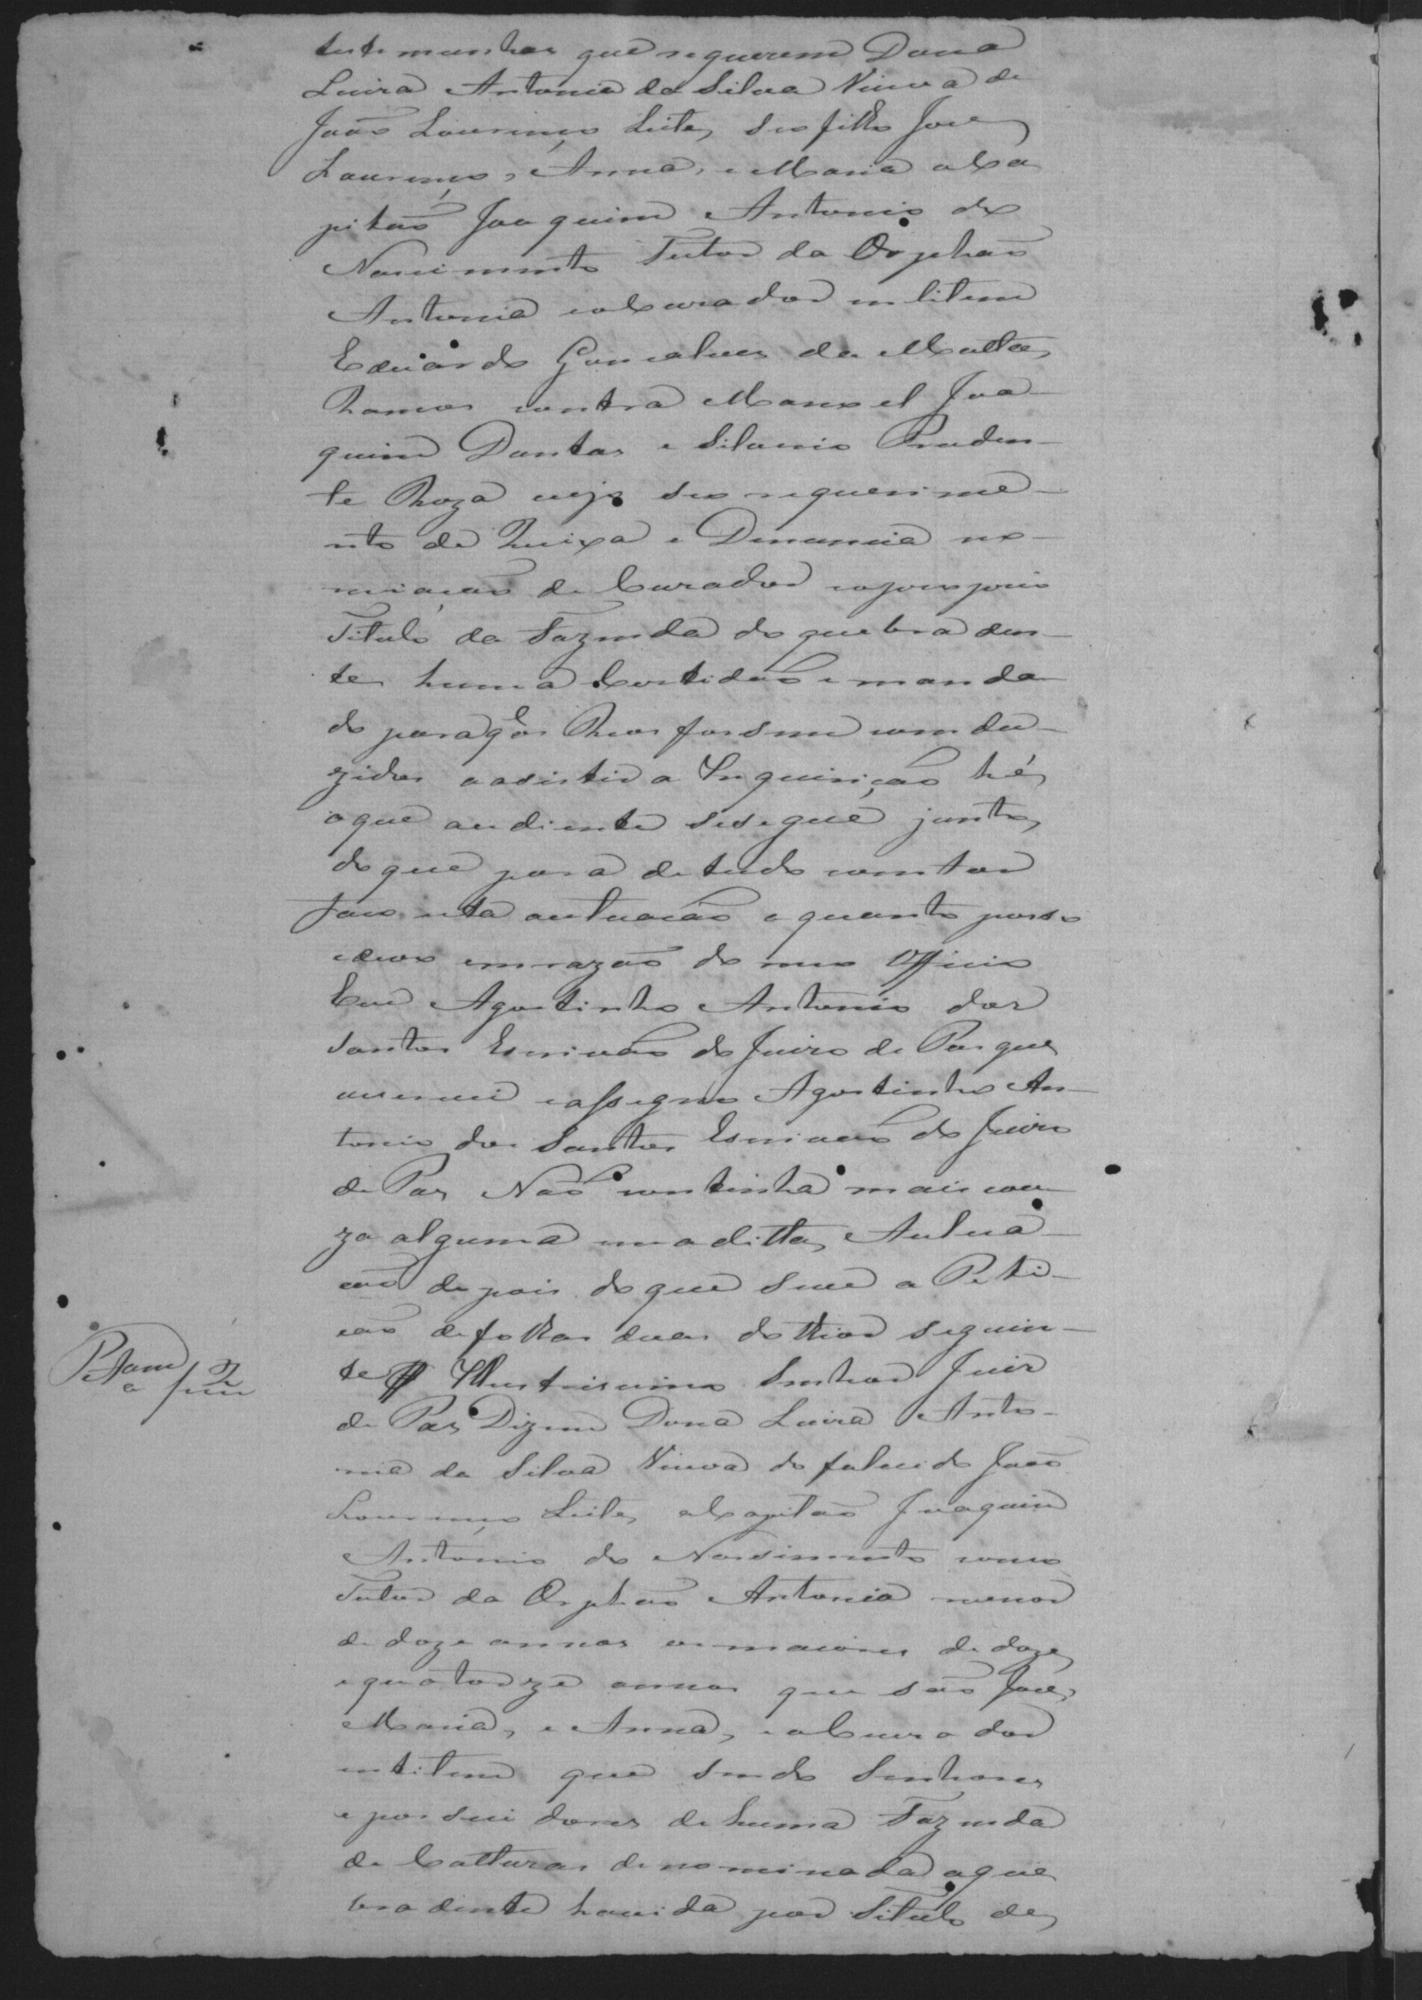 testemunhas que requerem Dona
Luiza Antonia da Silva Viuva de
João Lourenço Leite, seo filho Jose
Lourenço, Anna, e Maria o Ca
pitaõ Joaquim Antonio do
Nascimento Tutor da Orphaõ
Antonia e o Curador in litem
Eduardo Gonçalves da Motta,
Ramos contra Manoel Joa-
quim Dantas e Silverio Pruden-
te Roza cujo seo requerime-
nto de Queixa e Denuncia no-
miação de Curador
Titulo da Fazenda do quebra den-
te, huma Certidaõ e manda
do para q̃ os Reos fossem condu-
zidos a asistir a Inquiriçaõ hé,
o que ao diente se segue junto,
do que para de tudo constar
faço esta autuacaõ e quanto posso
e devo em razaõ do meo Officio
Eu Agostinho Antonio dos
Santos Escrivaõ do Juizo de Paz que,
escrevi e assigno Agostinho An-
tonio dos Santos Escrivaõ do Juizo
de Paz Naõ continha mais cou
za alguma em a ditta, Autua-
caõ depois do que se vê a Peti-
caõ de folhas duas do theor seguin-
te Illustrissimo Senhor Juiz
de Paz Dizem Dona Luiza Anto-
nia da Silva Viuva do falecido João
Lourenço Leite, o Capitaõ Joaquim
Antonio do Nascimento como
Tutor da Orphaõ Antonia menor
de doze annos os maiores de doze,
e quatorze annos que saõ Jose,
Maria, e Anna, e o Curador
in litem que sendo Senhores
e possuidores de huma Fazenda
de Culturas denominada a que
bra dente havida por Titulo de,
Petam
a